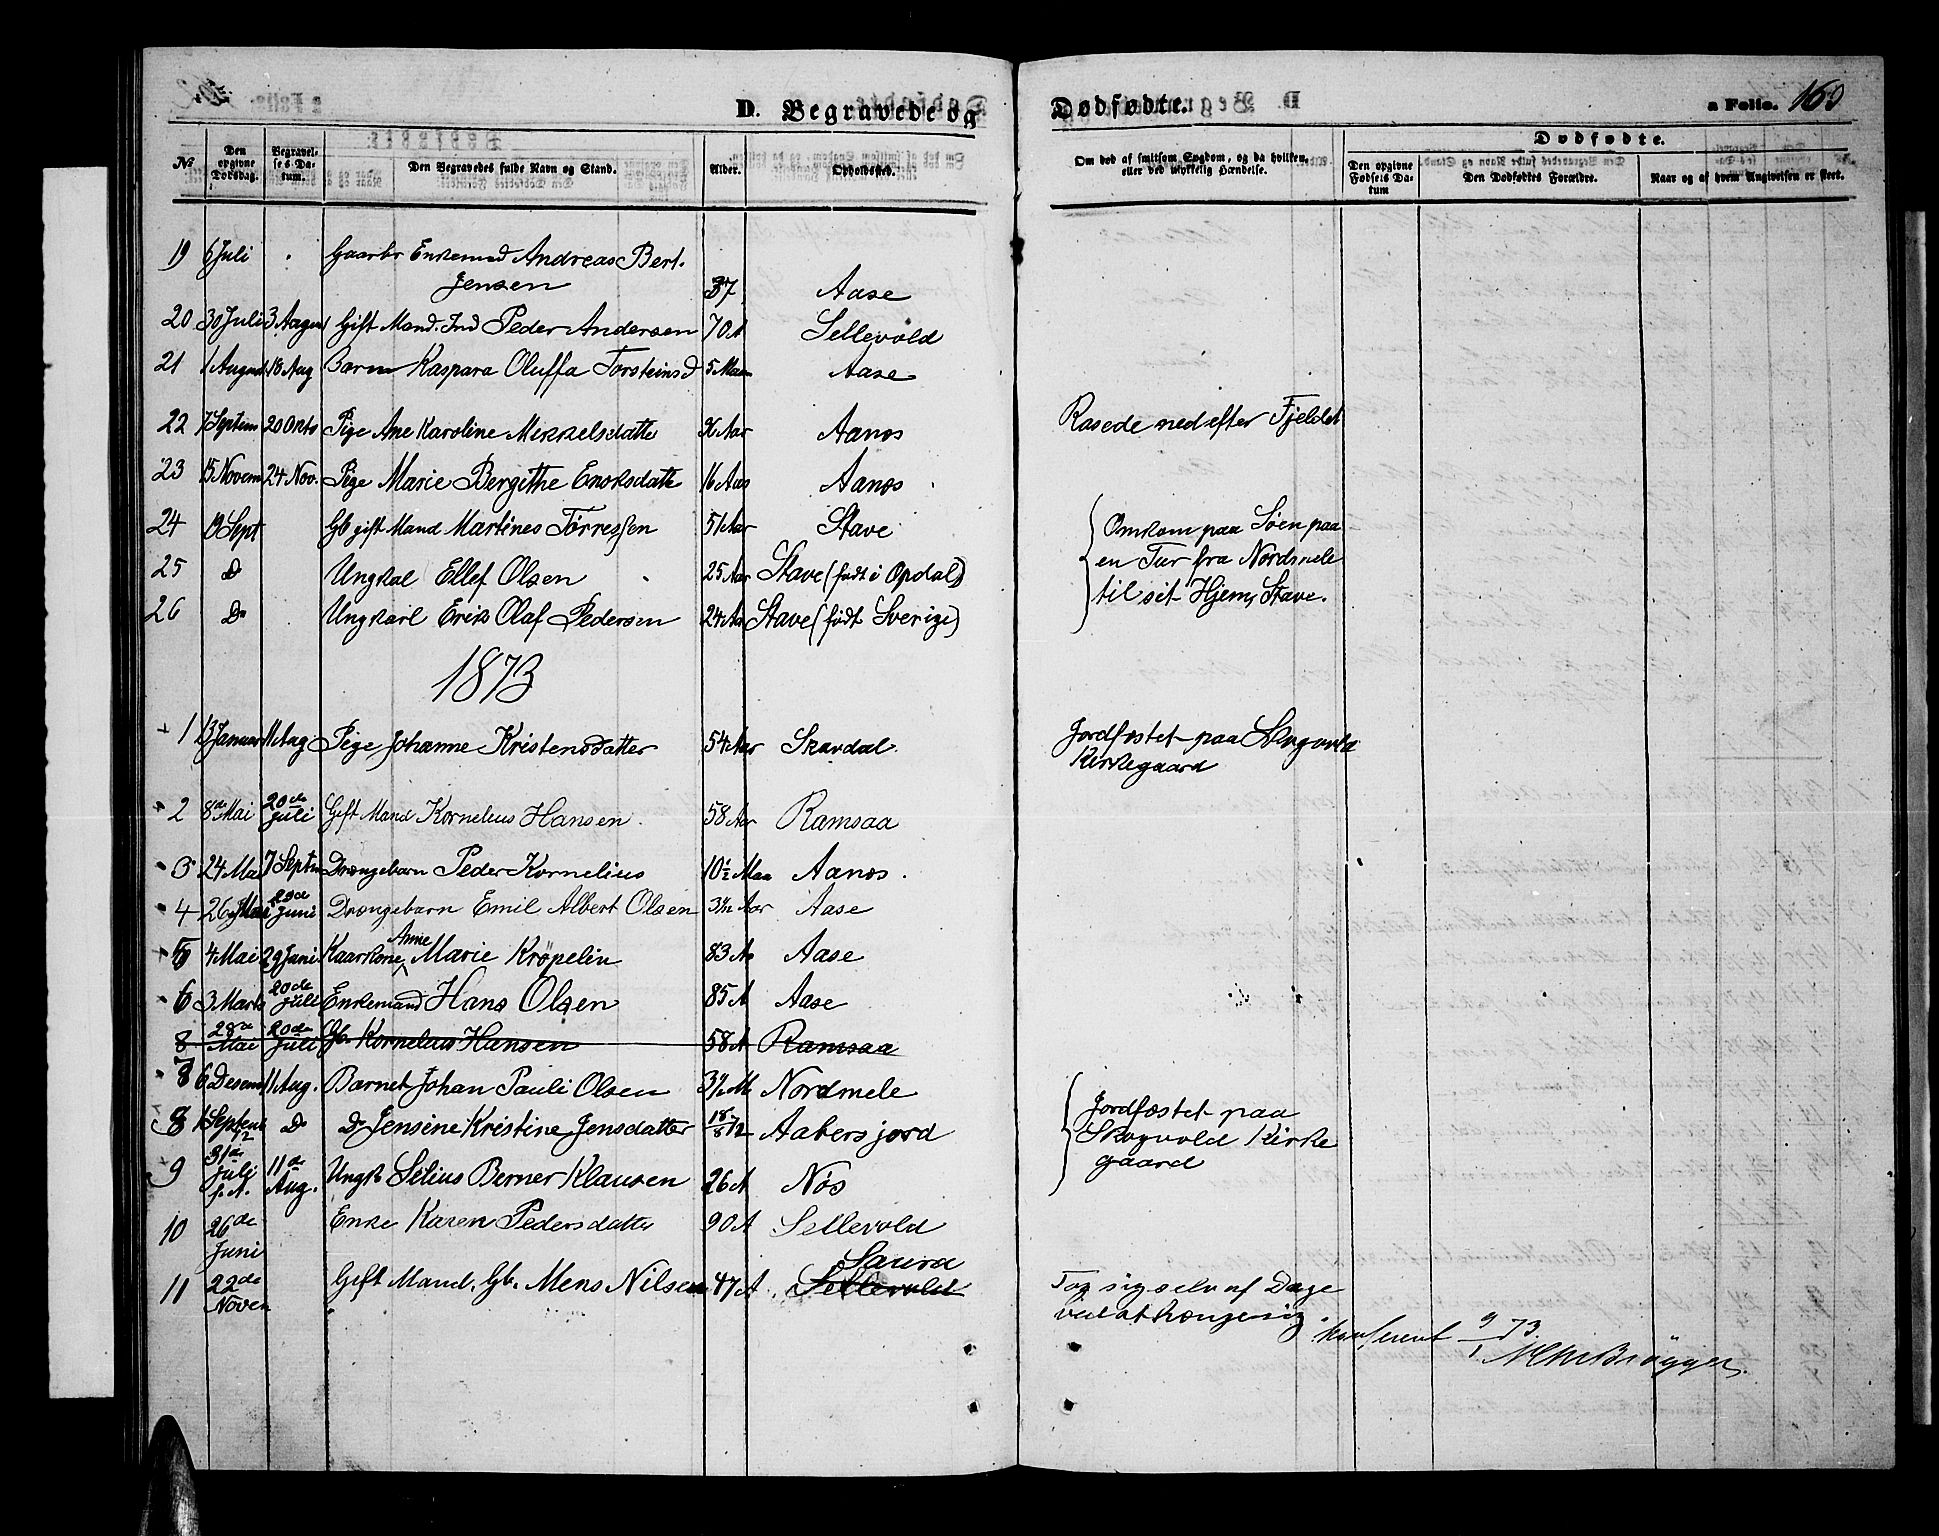 D. Begravede og Dødfødte. a Folio. 160
Dødfødte.
№ Den opgivne Dødsdag. Begravelses Datum. Den Begravedes fulde Navn og Stand. Alder. Opholdssted. Om død af smitsom Sygdom, og da hvilken, eller ved ulykkelig Hændelse. Den opgivne Fødsels Datum Den Dødfødtes Forældre. Naar og af hvem Angivelsen er skeet.
19 6 Juli Gaarbr Enkemand Andreas Bert.
Jensen 37 Aase
20 30 Juli 3 August Gift Mand. Ind Peder Andersen 70 A Sellevold
21 1 August 18 Aug Barn Kaspara Oluffa Torsteinsd 5 Maan Aase
22 7 Septem 20 Okto Pige Ane Karoline Mikkelsdatte Aar Aanes Rasede ned efter Fjeldet
23 15 Novem 24 Nov. Pige Marie Bergithe Enoksdatte 16 Aar Aanes
24 19 Sept Gb gift Mand Martines Tørressen 51 Aar Stave Omkom paa Søen paa
25 Do Ungkal Ellef Olsen 25 Aar Stave (født i Opdal) en Tur fra Nordmele
26 Do Ungkarl Erik Olaf Pedersen 24 Aa Stave (født Sverige) til sit Hjem, Stave.
1873
1 13 Januar 11 Aug Pige Johanne Kristensdatter 54 Aar Skavdal Jordfæstet paa Skogvold
Kirkegaard
2 8de Mai 20de Juli Gift Mand Kornelius Hansen. 58 Aar Ramsaa
3 24 Mai 7 Septm Drængebarn Peder Kornelius 10½ Maa Aanes.
4 26 Mai Juni Drængebarn Emil Albert Olsen 3½ Aar Aase
5 4 Mai 29 Juni Kaarkone Anne Marie Krøpelin 83 Aa Aase
6 3 Marts 20de Juli Enkemand Hans Olsen 85 A Aase
8 28de Mai 20de Juli Gb. Kornelius Hansen 58 A Ramsaa
7 6 Desem 11 Aug. Barnet Johan Pauli Olsen 3½ M Nordmele
8 1 Septemb Do Do Jensine Kristine Jensdatter 18/8 72 Aabersjord Jordfæstet paa
Skogvold Kirke
gaard
9 31de Juli f. A. 11de Aug. Ungk Selius Berner Klausen 26 A Nøs
10 26de Juni Enke Karen Pedersdatte 90 A Sellevold
Saura
11 22de Novem Gift Mand. Gb. Mons Nilsen 47 A. Sellevold Tog sig selv af Dage
ved at hænge sig.
Konfereret 9/1 73.
Brøgger.